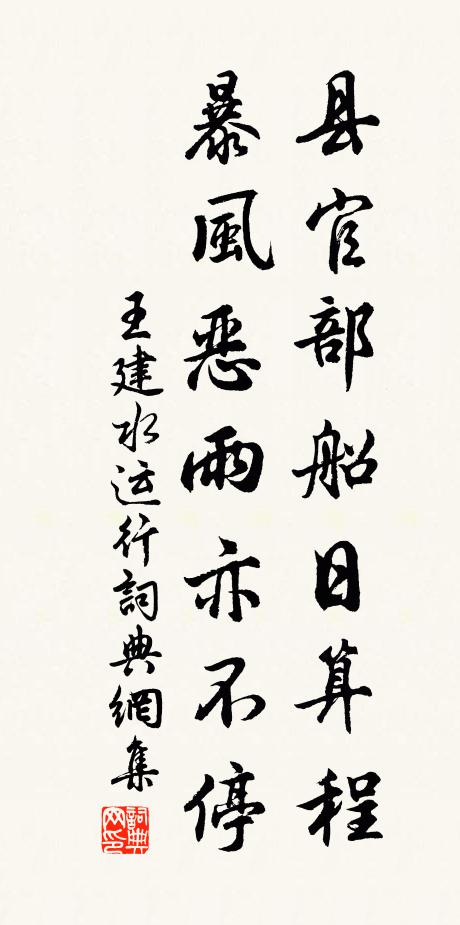 县官部船日算程
暴風恶雨亦不停
王建水运行詞典網集
詞典网印